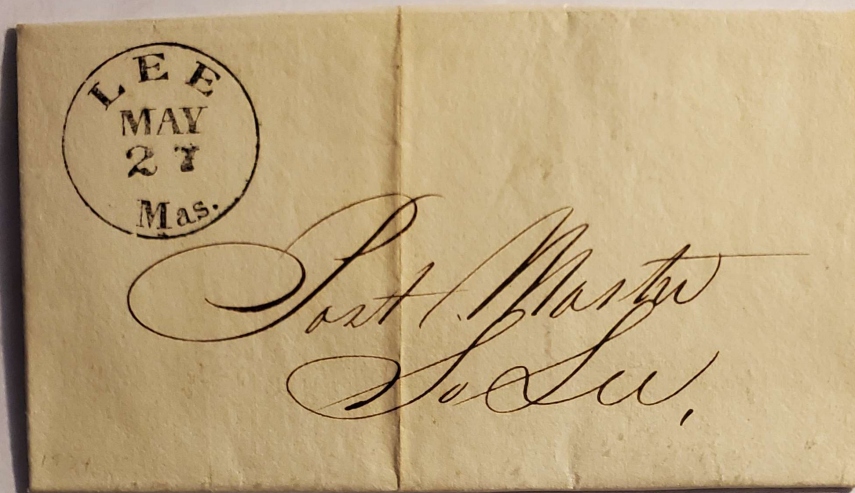 LEE
MAY
27
Mas.
Post Master
So Lee,